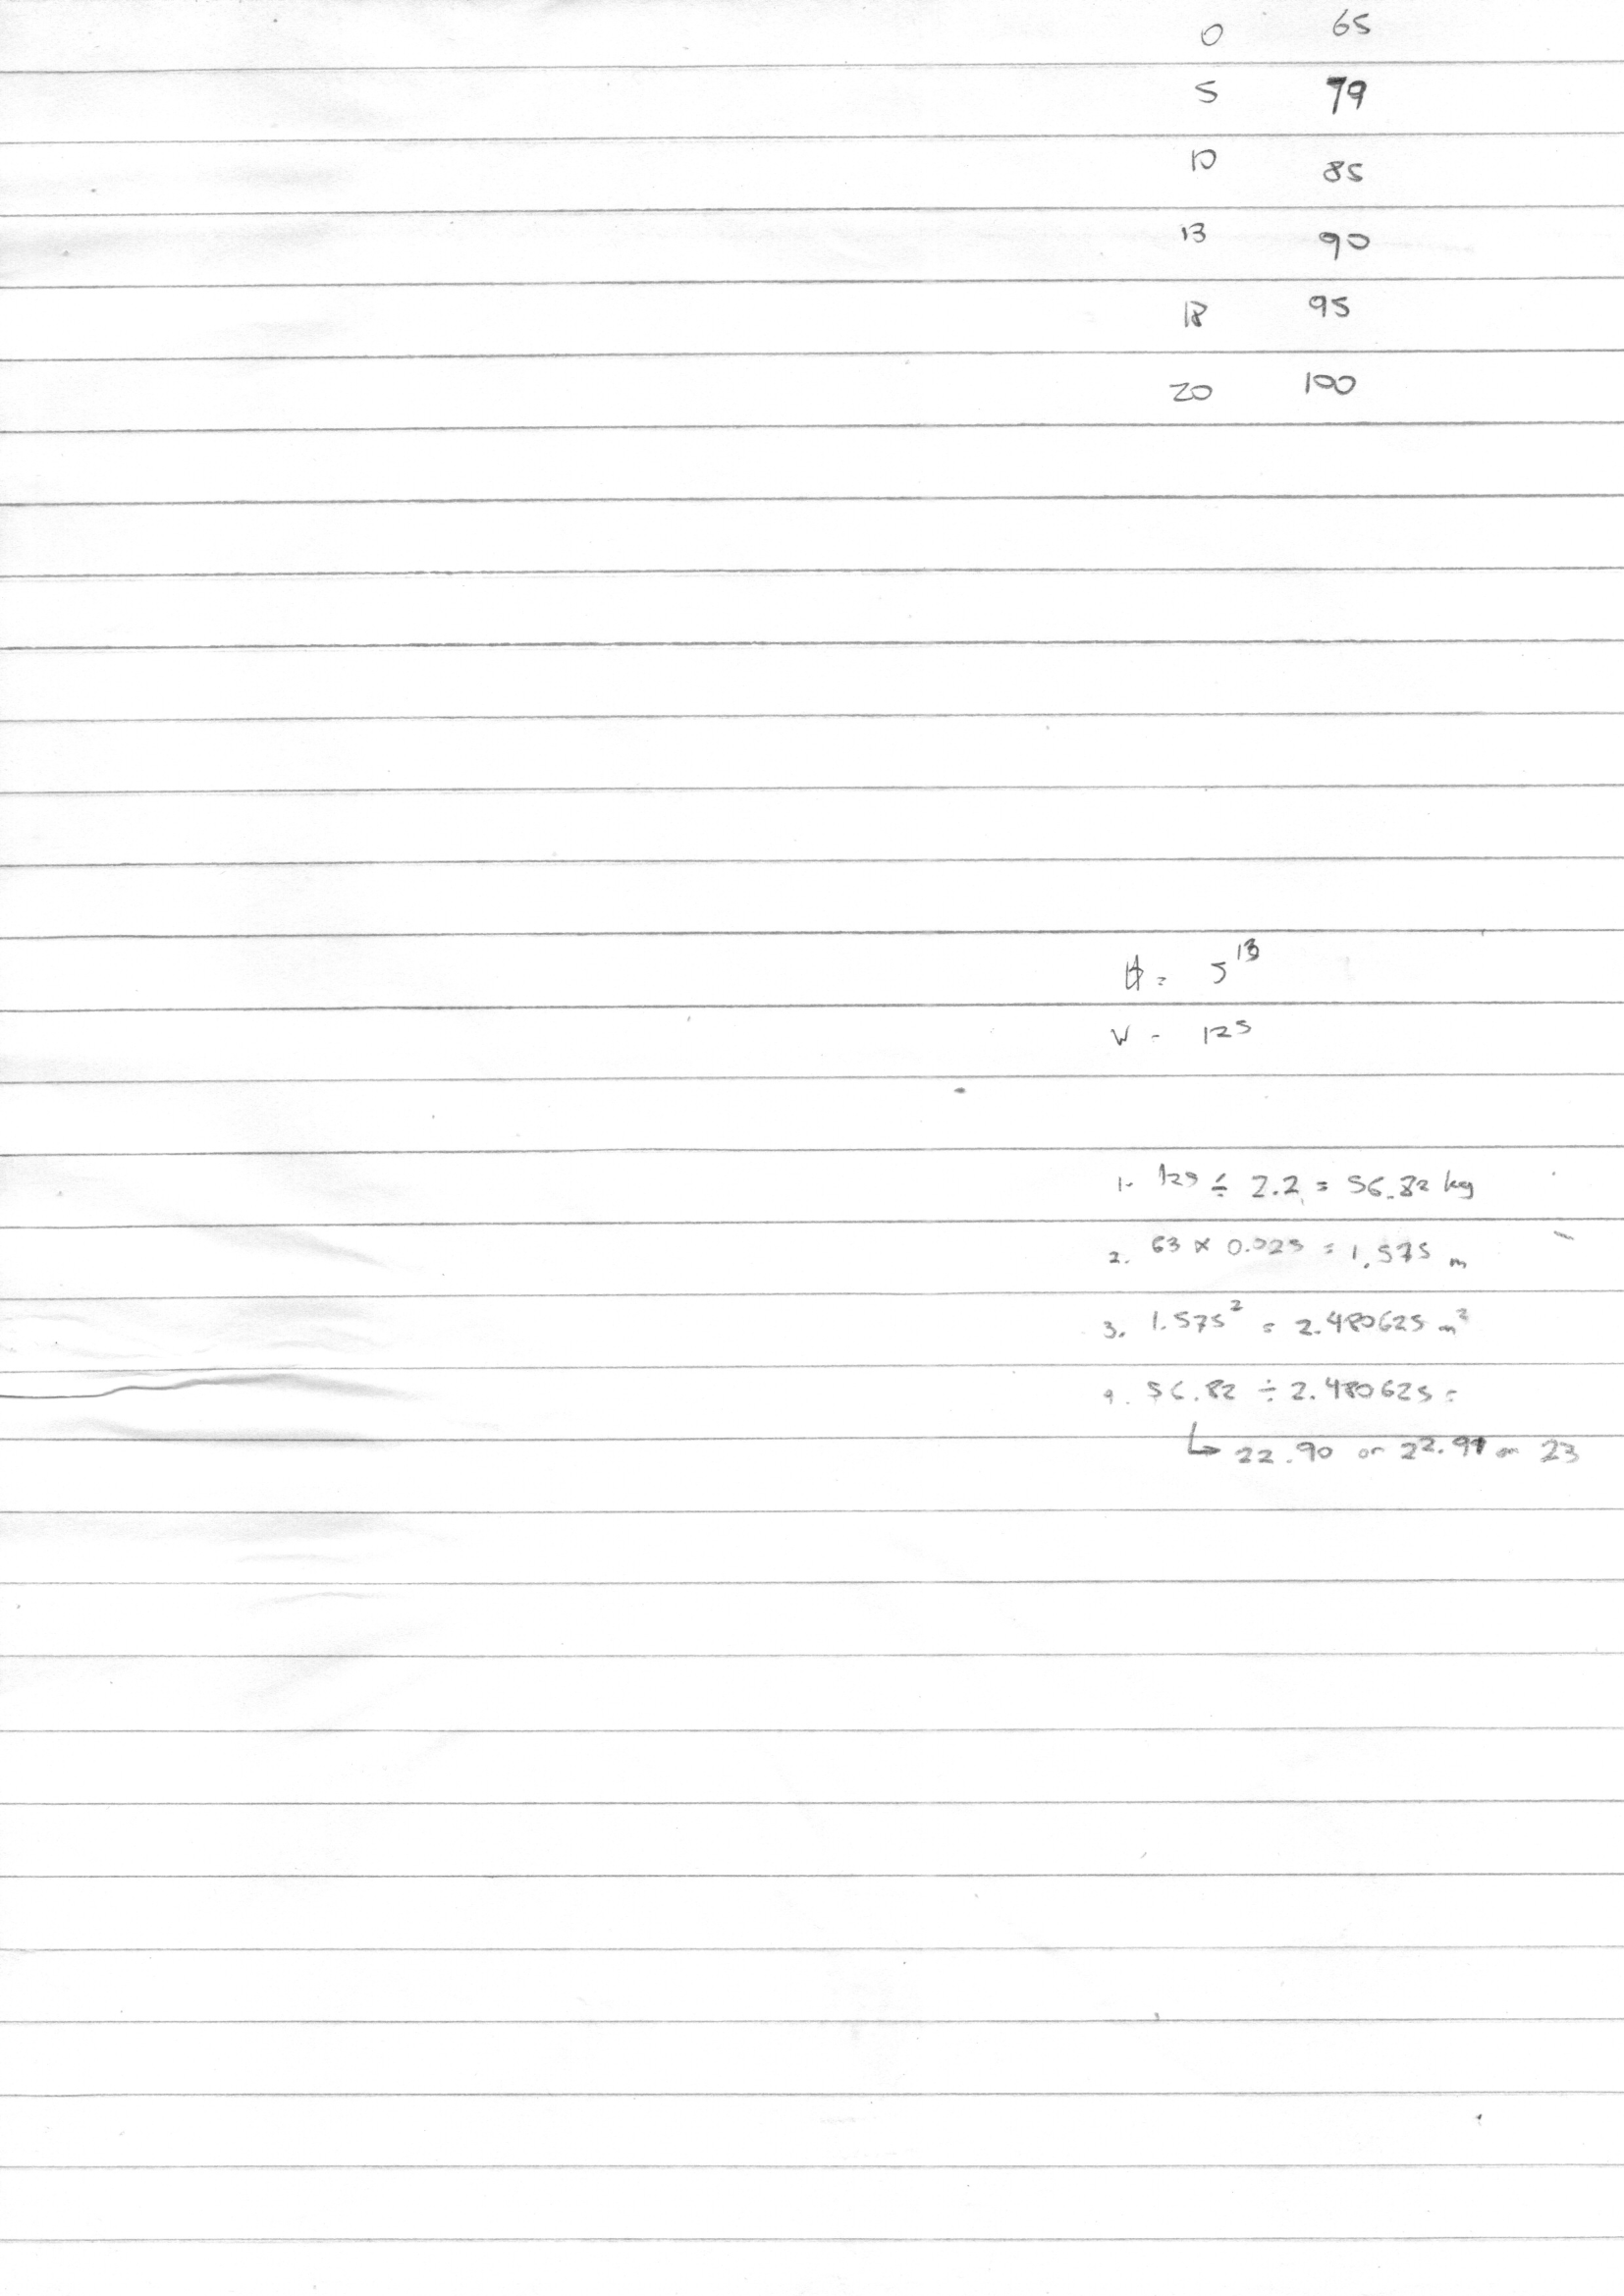 0 65
5 79
10 85
13 90
18 95
20 100
H = 5'3
W = 125
1. 125 ÷ 2.2 = 56.82 kg
2. 63 x 0.025 = 1.575 m
3. 1.575² = 2.480625 m²
4. 56.82 ÷ 2.480625 =
↳ 22.90 or 22.91 or 23